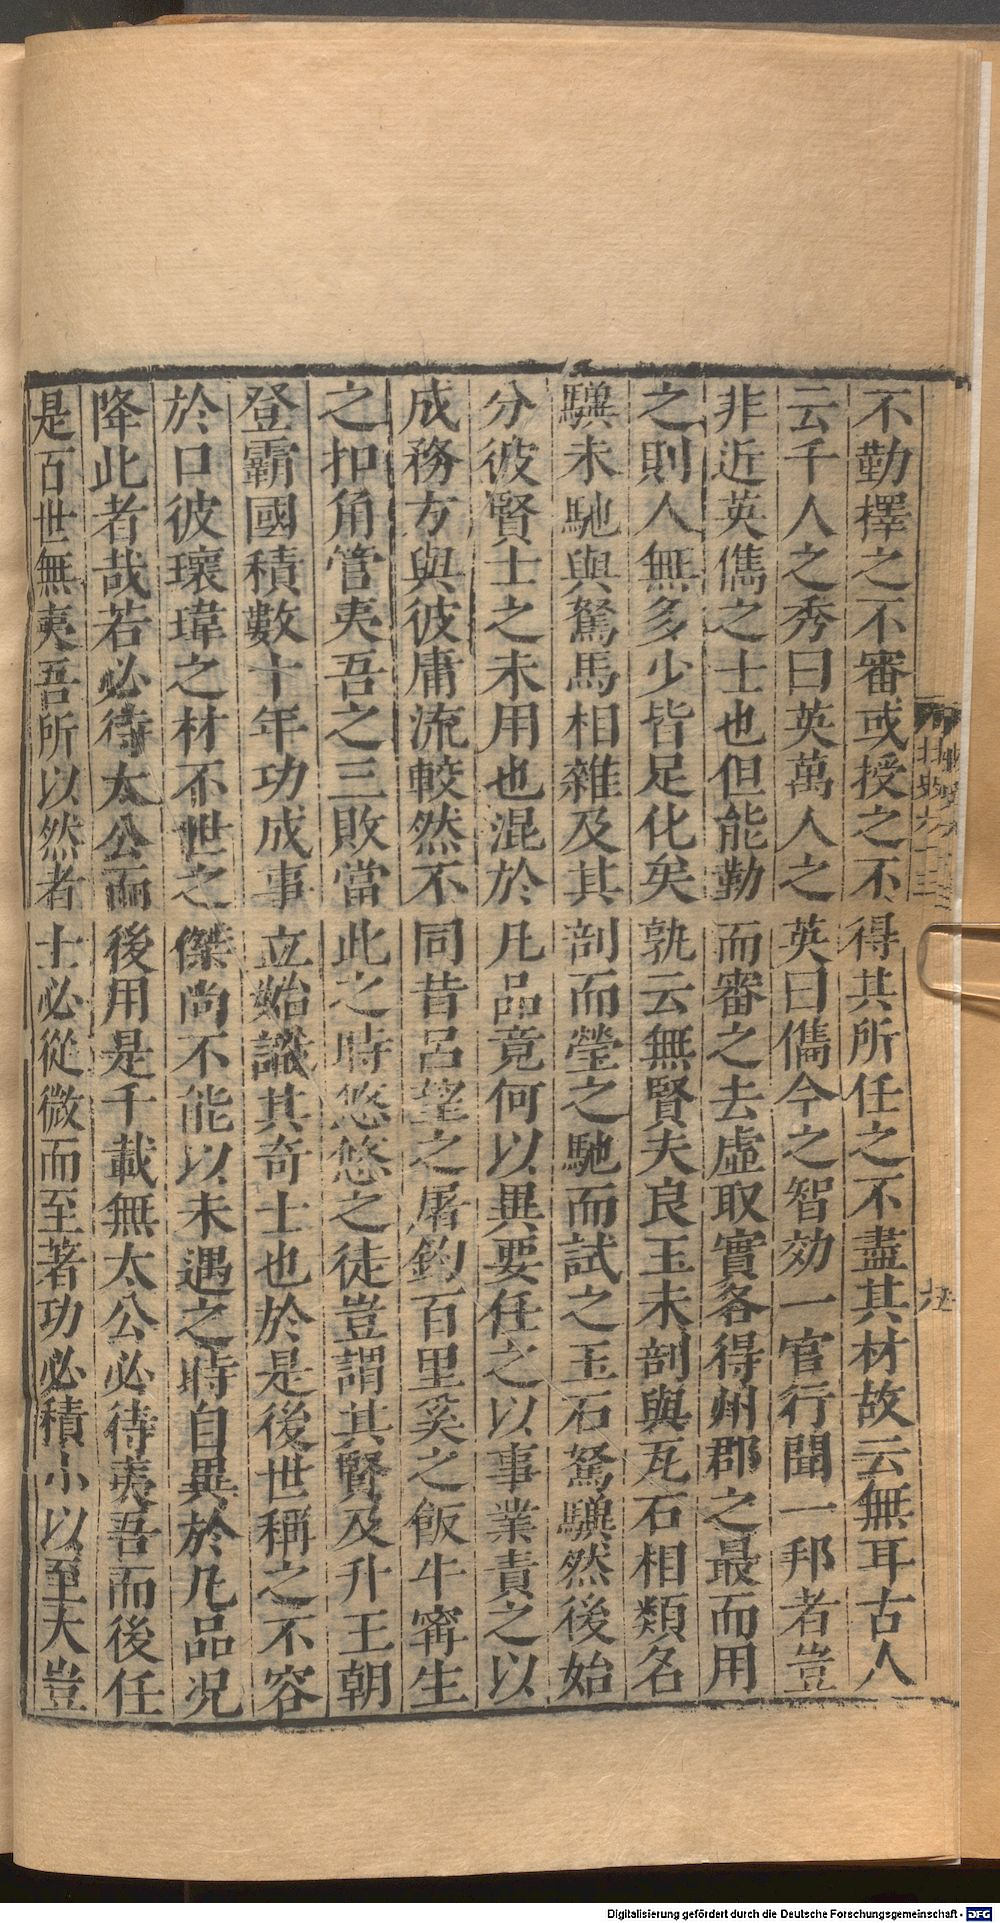 不勤擇之不審或授之不得其所任之不盡其材故云無耳古人
云千人之秀曰英萬人之英曰儁今之智效一官行聞一邦者豈
非近英儁之士也但能勤而審之去虛取實各得州郡之最而用
之則人無多少皆足化矣孰云無賢夫良玉未剖與瓦石相類名
驥未馳與駑馬相雜及其剖而瑩之馳而試之玉石駑驥然後始
分彼賢士之未用也混於凡品竟何以異要任之以事業責之以
成務方與彼庸流較然不同昔呂望之屠釣百里奚之飯牛甯生
之扣角管夷吾之三敗當此之時悠悠之徒豈謂其賢及升王朝
登霸國積數十年功成事立始識其奇士也於是後世稱之不容
於口彼瓌瑋之材不世之傑尚不能以未遇之時自異於凡品況
降此者哉若必待太公而後用是千載無太公必待夷吾而後任
是百世無夷吾所以然者士必從微而至著功必積小以至大豈
Digitalisierung gefördert durch die Deutsche Forschungsgemeinschaft - DFG